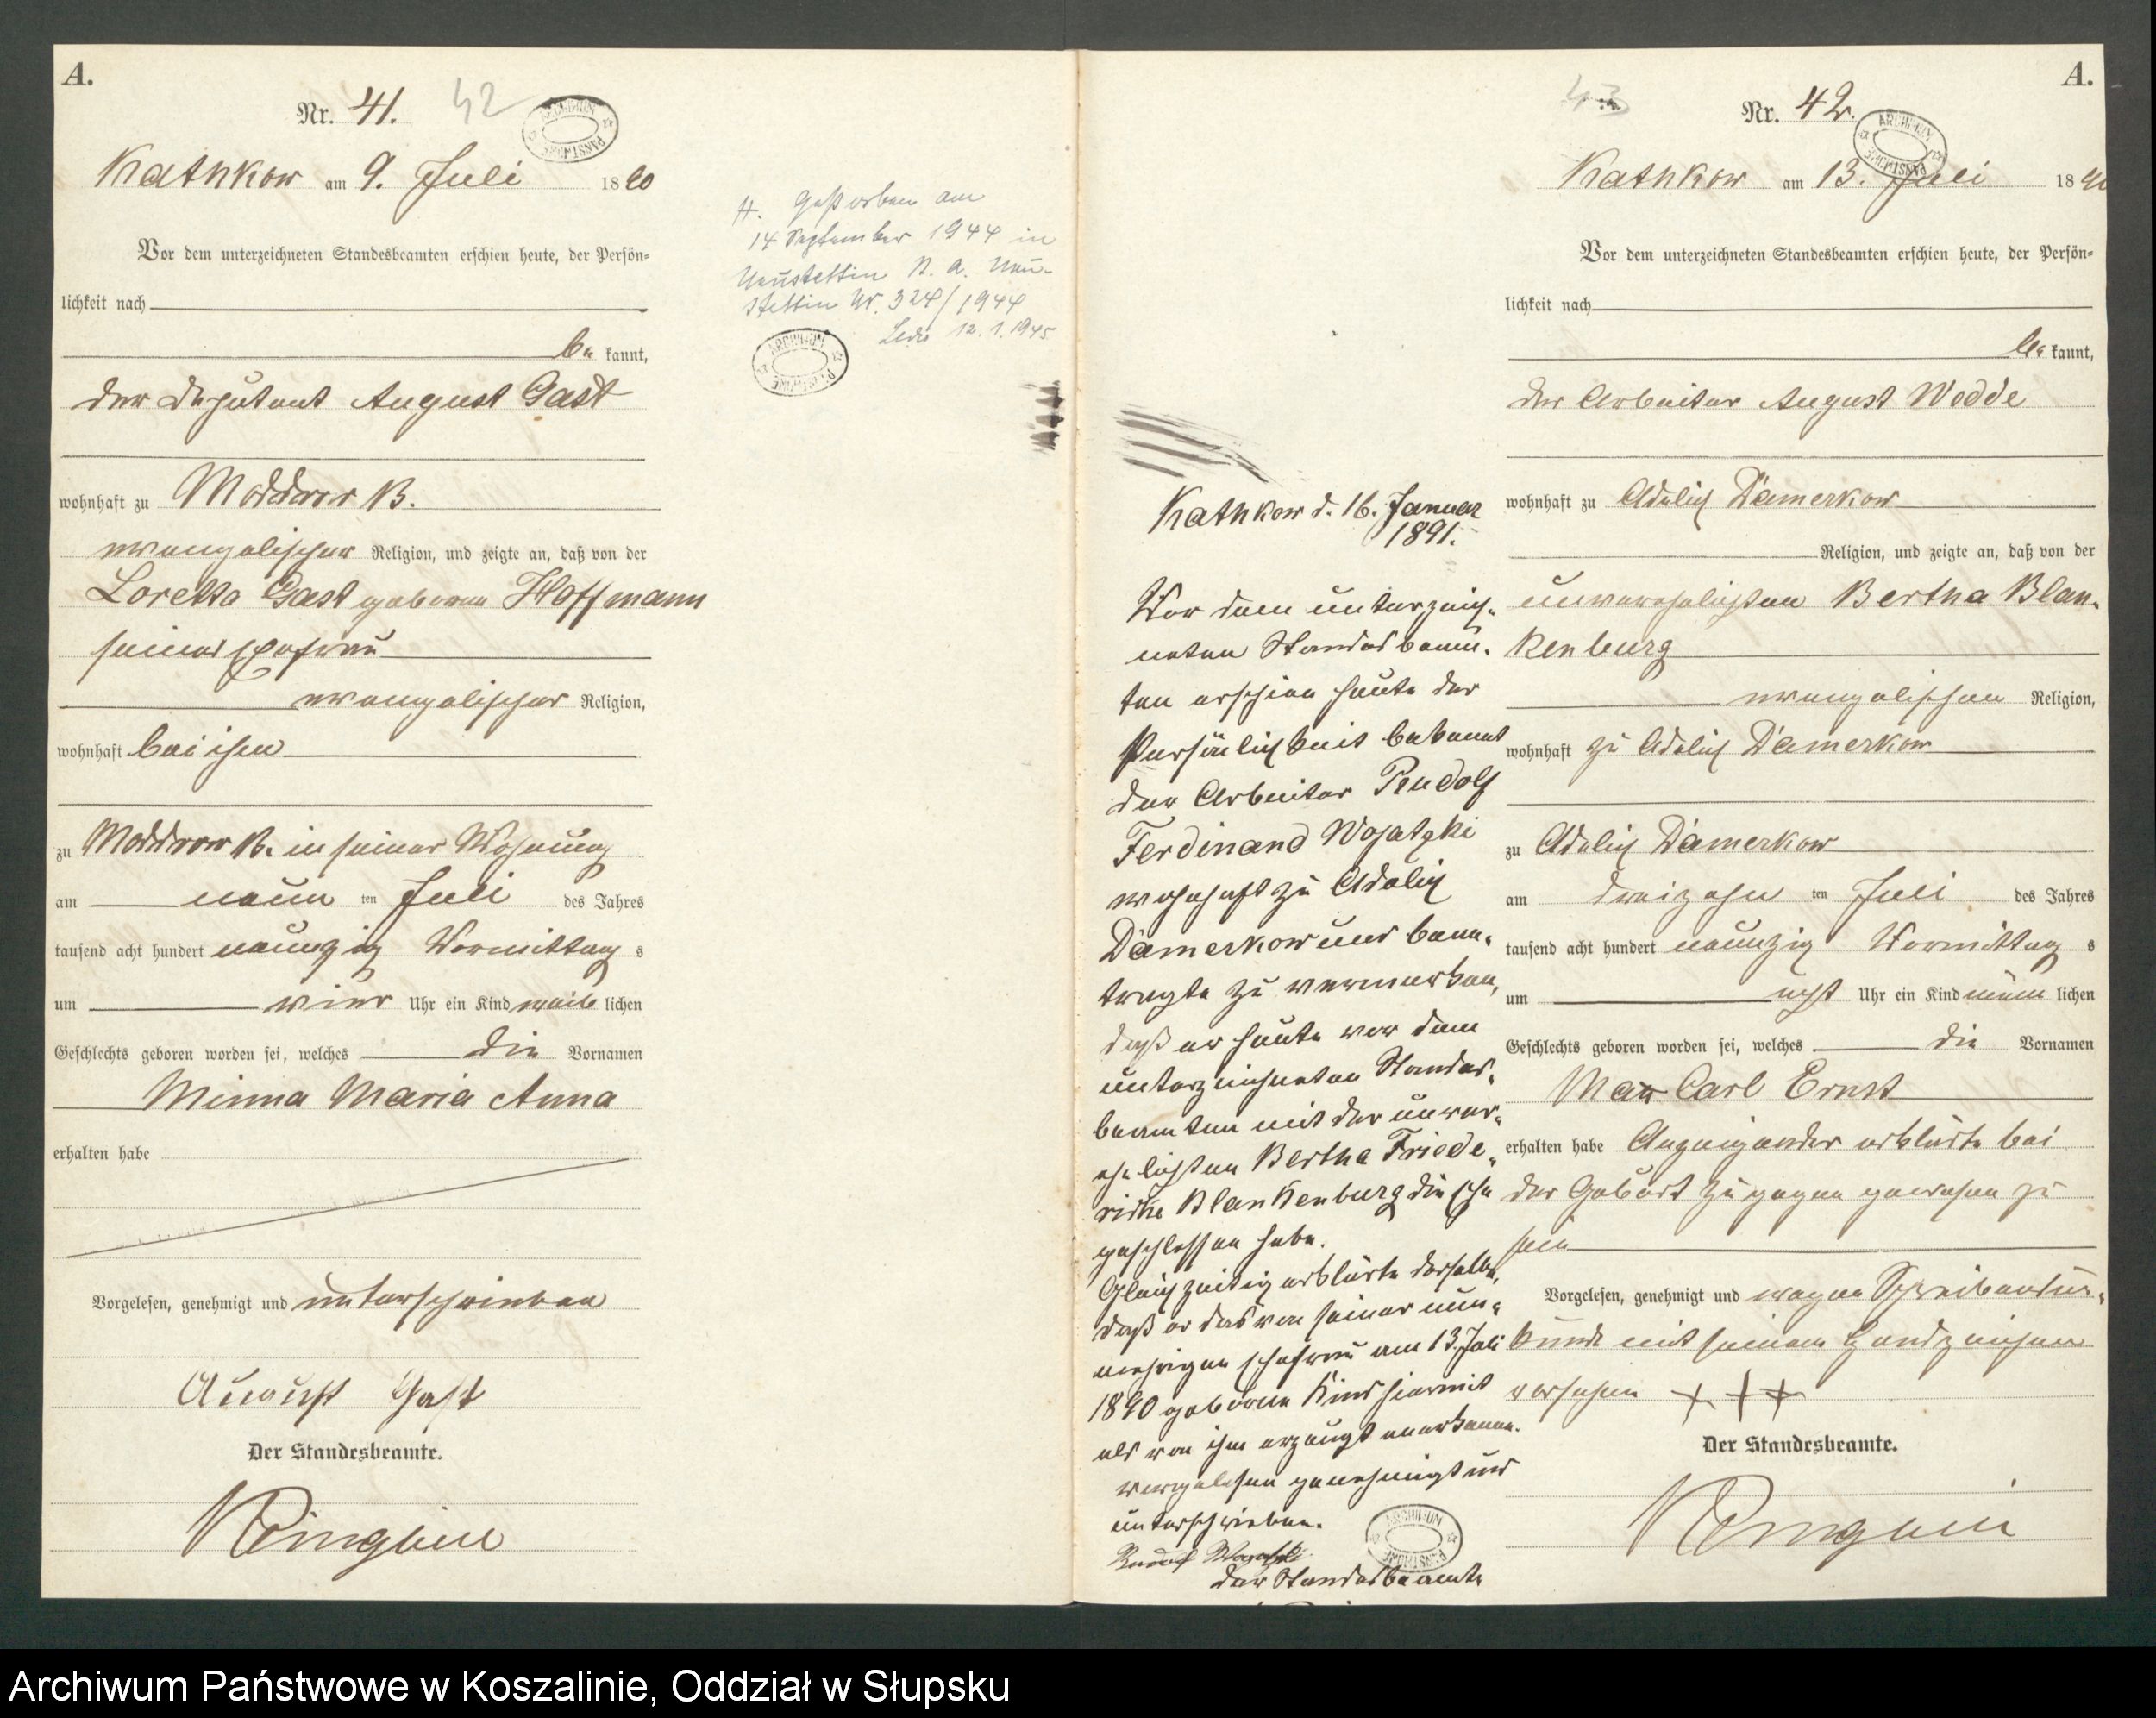 A.
Nr. 41. 42
ARCHIWUM PAŃSTWOWE
Kathkow am 9. Juli 1890
Vor dem unterzeichneten Standesbeamten erschien heute, der Persön-
lichkeit nach
be kannt,
der Deputant August Gast
wohnhaft zu Moddrow B.
evangelischer Religion, und zeigte an, daß von der
Loretta Gast geborene Hoffmann
seiner Ehefrau
evangelischer Religion,
wohnhaft bei ihm
zu Moddrow B. in seiner Wohnung
am neun ten Juli des Jahres
tausend acht hundert neunzig Vormittag s
um vier Uhr ein Kind weib lichen
Geschlechts geboren worden sei, welches die Vornamen
Minna Maria Anna
erhalten habe
Vorgelesen, genehmigt und unterschrieben
August Gast
Der Standesbeamte.
H. Gestorben am
14 September 1944 in
Neustettin St. A. Neu-
stettin Nr. 324/1944
12. 1. 1945
ARCHIWUM PAŃSTWOWE
Kathkow d. 16. Januar
1891.
Vor dem unterzeich-
neten Standesbeam-
ten erschien heute der
Persönlichkeit bekannt
der Arbeiter Rudolf
Ferdinand Wojatzki
wohnhaft zu Adelich
Dämerkow und bean-
tragte zu vermerken,
daß er heute vor dem
unterzeichneten Standes-
beamten mit der unver-
ehelichten Bertha Friede-
rike Blankenburg die Ehe
geschlossen habe.
Gleichzeitig erklärte derselbe,
daß er das von seiner nun-
mehrigen Ehefrau am 13. Juli
1890 geborene Kind hiermit
als von ihm erzeugt anerkenne.
vorgelesen genehmigt und
unterschrieben.
Rudolf Wojatzki
Der Standesbeamte
ARCHIWUM PAŃSTWOWE
A.
43 Nr. 42.
ARCHIWUM PAŃSTWOWE
Kathkow am 13. Juli 1890
Vor dem unterzeichneten Standesbeamten erschien heute, der Persön-
lichkeit nach
be kannt,
der Arbeiter August Wedde
wohnhaft zu Adelich Dämerkow
Religion, und zeigte an, daß von der
unverehelichten Bertha Blan-
kenburg
evangelischen Religion,
wohnhaft zu Adelich Dämerkow
zu Adelich Dämerkow
am dreizehn ten Juli des Jahres
tausend acht hundert neunzig Vormittag s
um acht Uhr ein Kind männ lichen
Geschlechts geboren worden sei, welches die Vornamen
Max Carl Ernst
erhalten habe Anzeigender erklärte bei
der Geburt zugegen gewesen zu
sein
Vorgelesen, genehmigt und wegen Schreibensun-
kunde mit seinem Handzeichen
versehen + + +
Der Standesbeamte.
Archiwum Państwowe w Koszalinie, Oddział w Słupsku